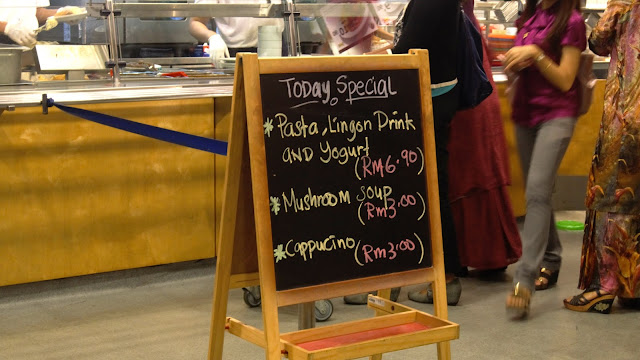 Today Special
* Pasta, Lingon Drink
AND Yogurt
(RM6.90)
* Mushroom soup
(Rm3.00)
* Cappucino (Rm3.00)